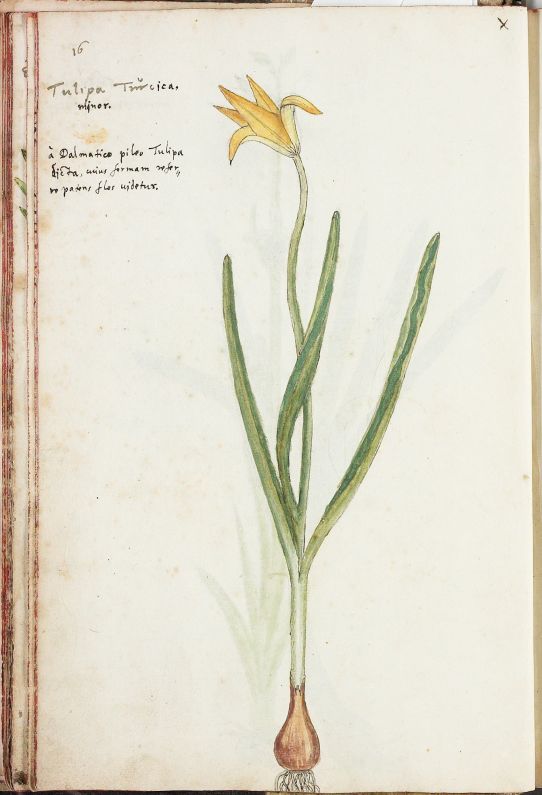 16
X
Tulipa Turcica.
minor.
à Dalmatico pileo Tulipa
dicta, cuius formam refer„
re patens flos uidetur.